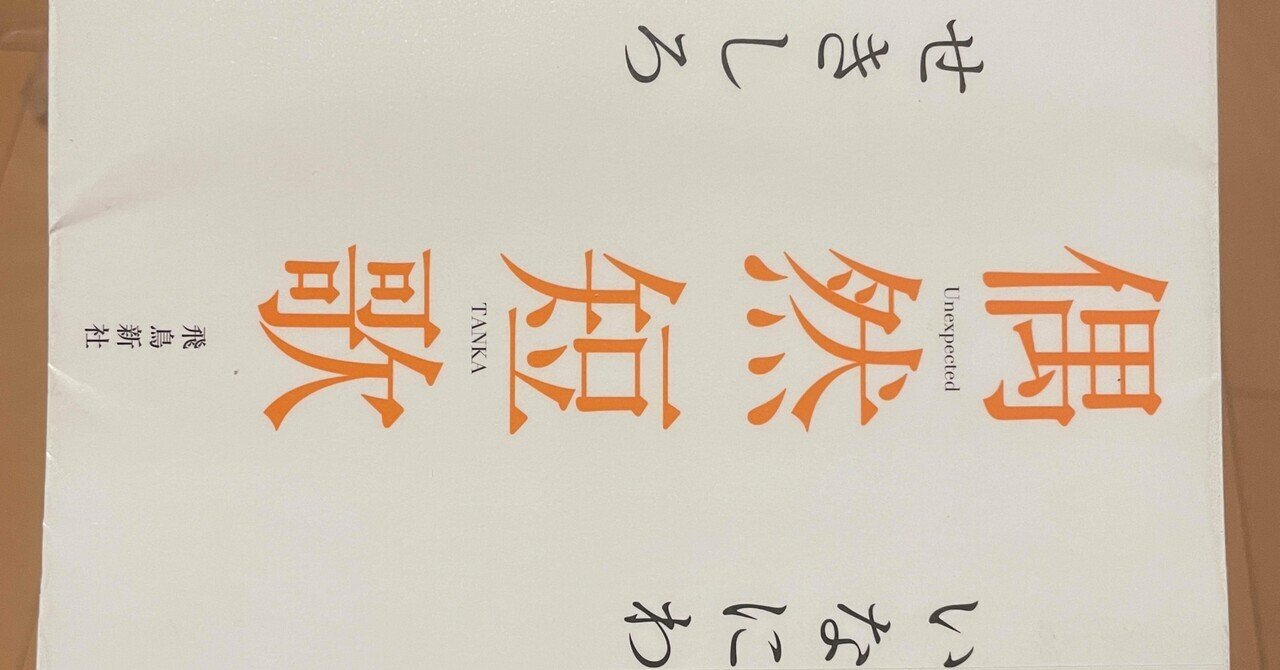 いなにわ
偶然
Unexpected
短歌
TANKA
せきしろ
飛鳥新社